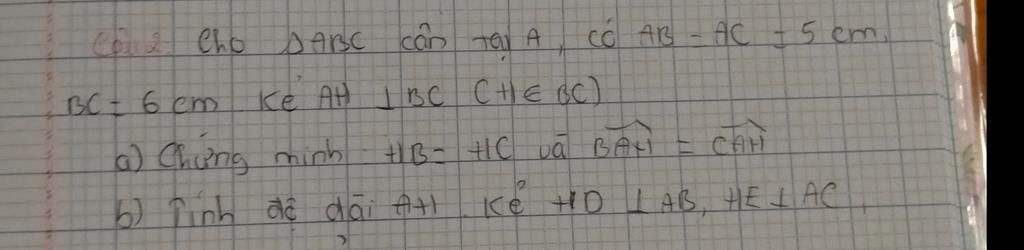 Câu 2. Cho ΔABC cân tại A, có AB = AC = 5 cm,
BC = 6 cm Kẻ AH ⊥ BC (H ∈ BC)
a) Chứng minh HB = HC và \widehat{BAH} = \widehat{CAH}
b) Tính độ dài AH. Kẻ HD ⊥ AB, HE ⊥ AC